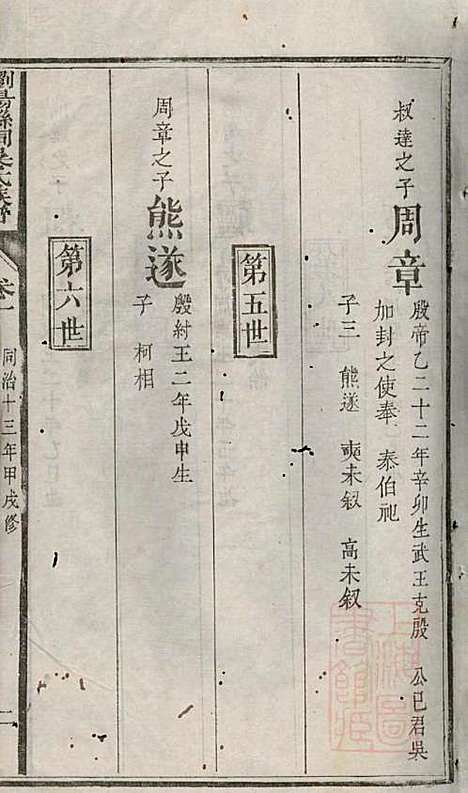 叔達之子
周章
殷帝乙二十二年辛卯生武王克殷 公已君吳
加封之使奉 泰伯祀
子三 熊遂 奭未叙 高未叙
第五世
周章之子
熊遂
殷紂王二年戊申生
子 柯相
第六世
卷一
同治十三年甲戌修
上海圖書館藏